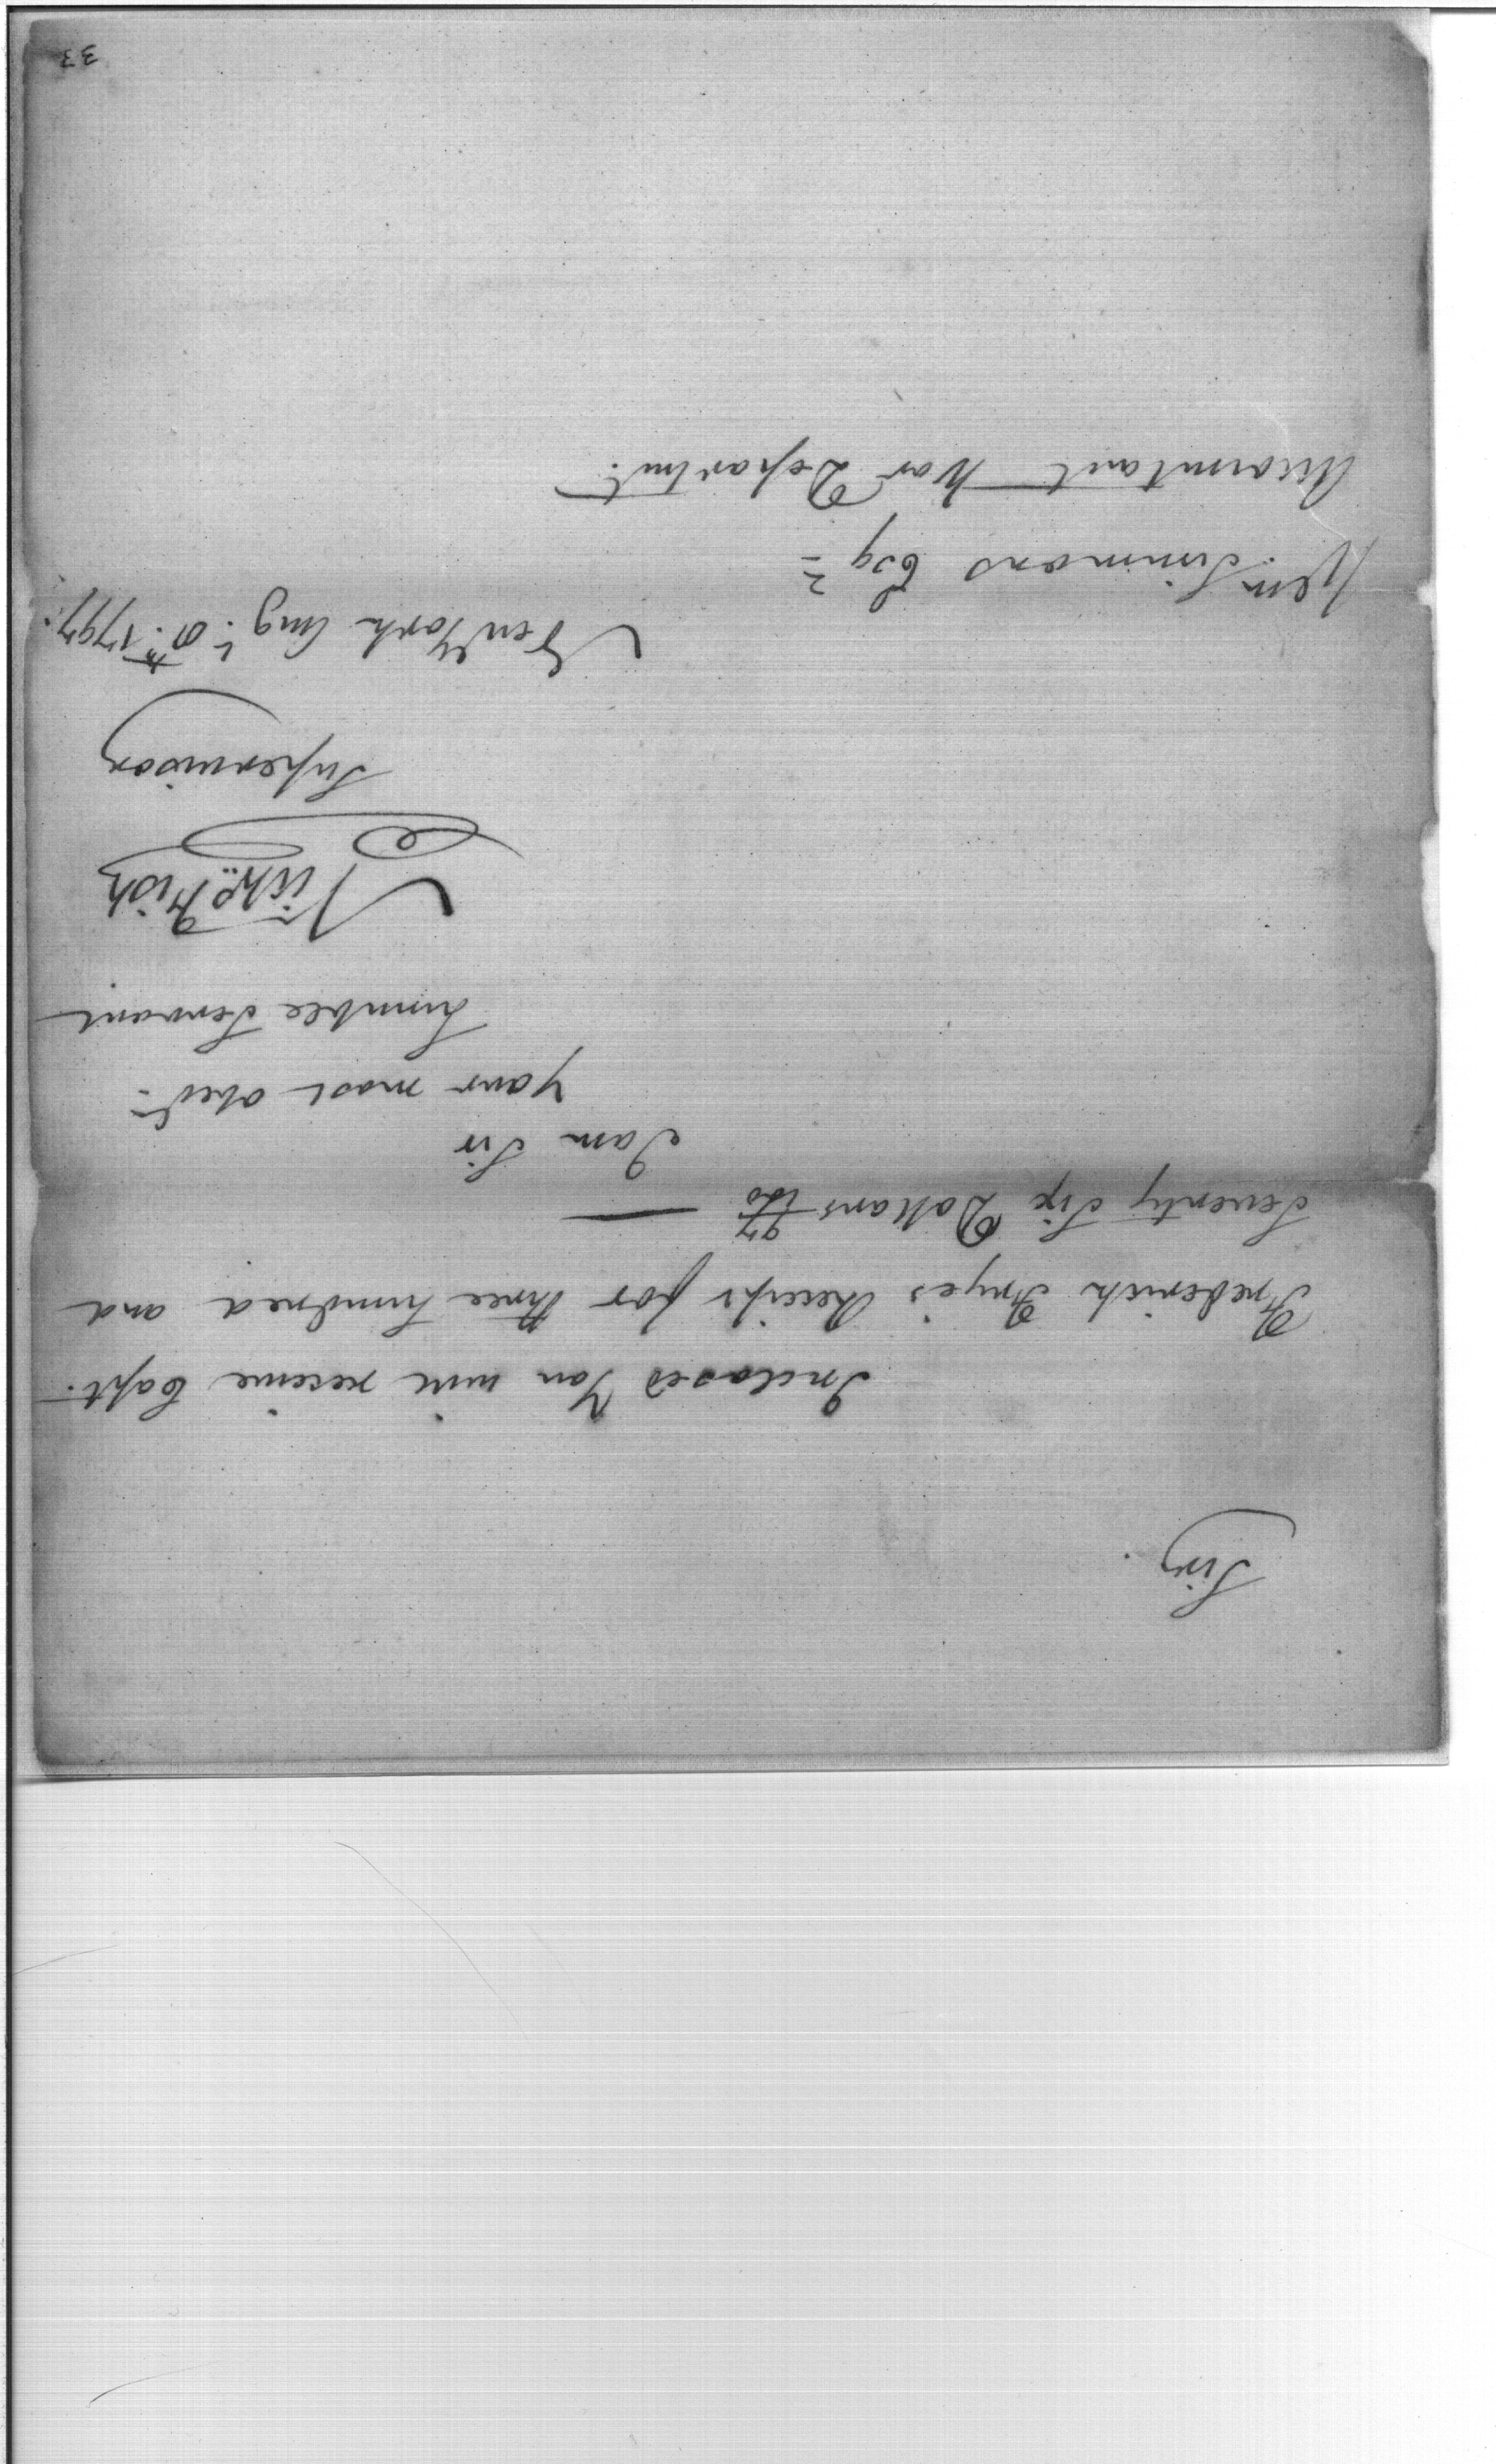 Sir,
Inclosed You will receive Capt.
Frederick Frye's Receipt for three hundred and
Seventy Six Dollars 97/100 —
I am Sir
Your most obedt.
humble Servant
Nichs. Fish
Supervisor
New York Augt. 1797.
Wm. Simmons Esqr.
Accountant War Departmt.
33